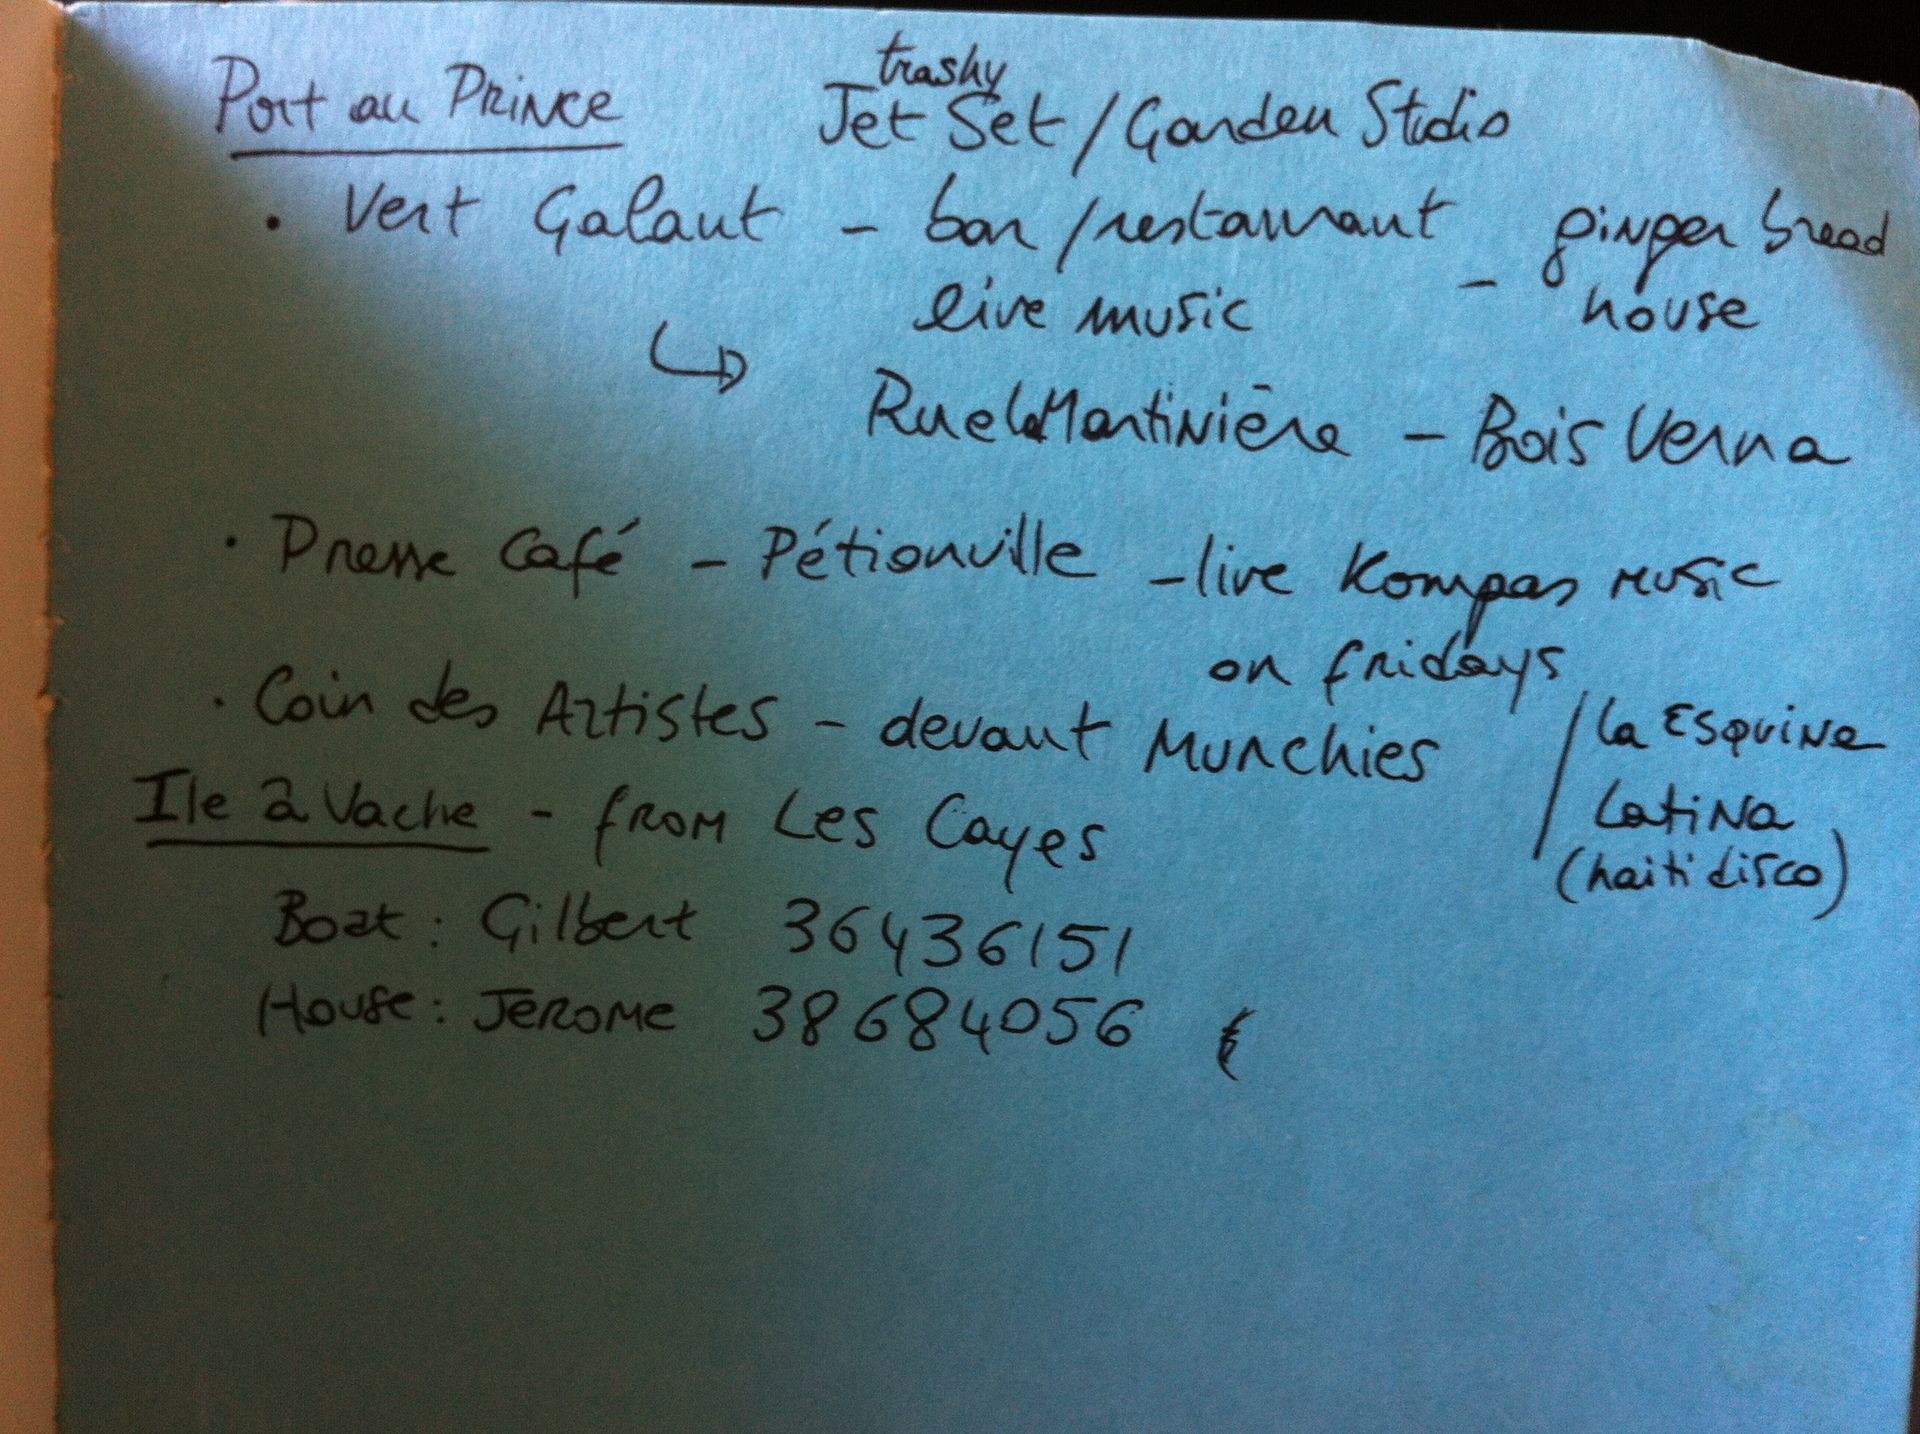 Port au Prince
trashy
Jet Set / Garden Studio
• Vert Galant - bar / restaurant - ginger bread
live music - house
Rue la Martinière - Bois Verna
• Presse Café - Pétionville - live Kompas music
on fridays
• Coin des Artistes - devant Munchies
/ La Esquina
Latina
(haiti disco)
Ile à Vache - from Les Cayes
Boat : Gilbert 36436151
House : Jerome 38684056